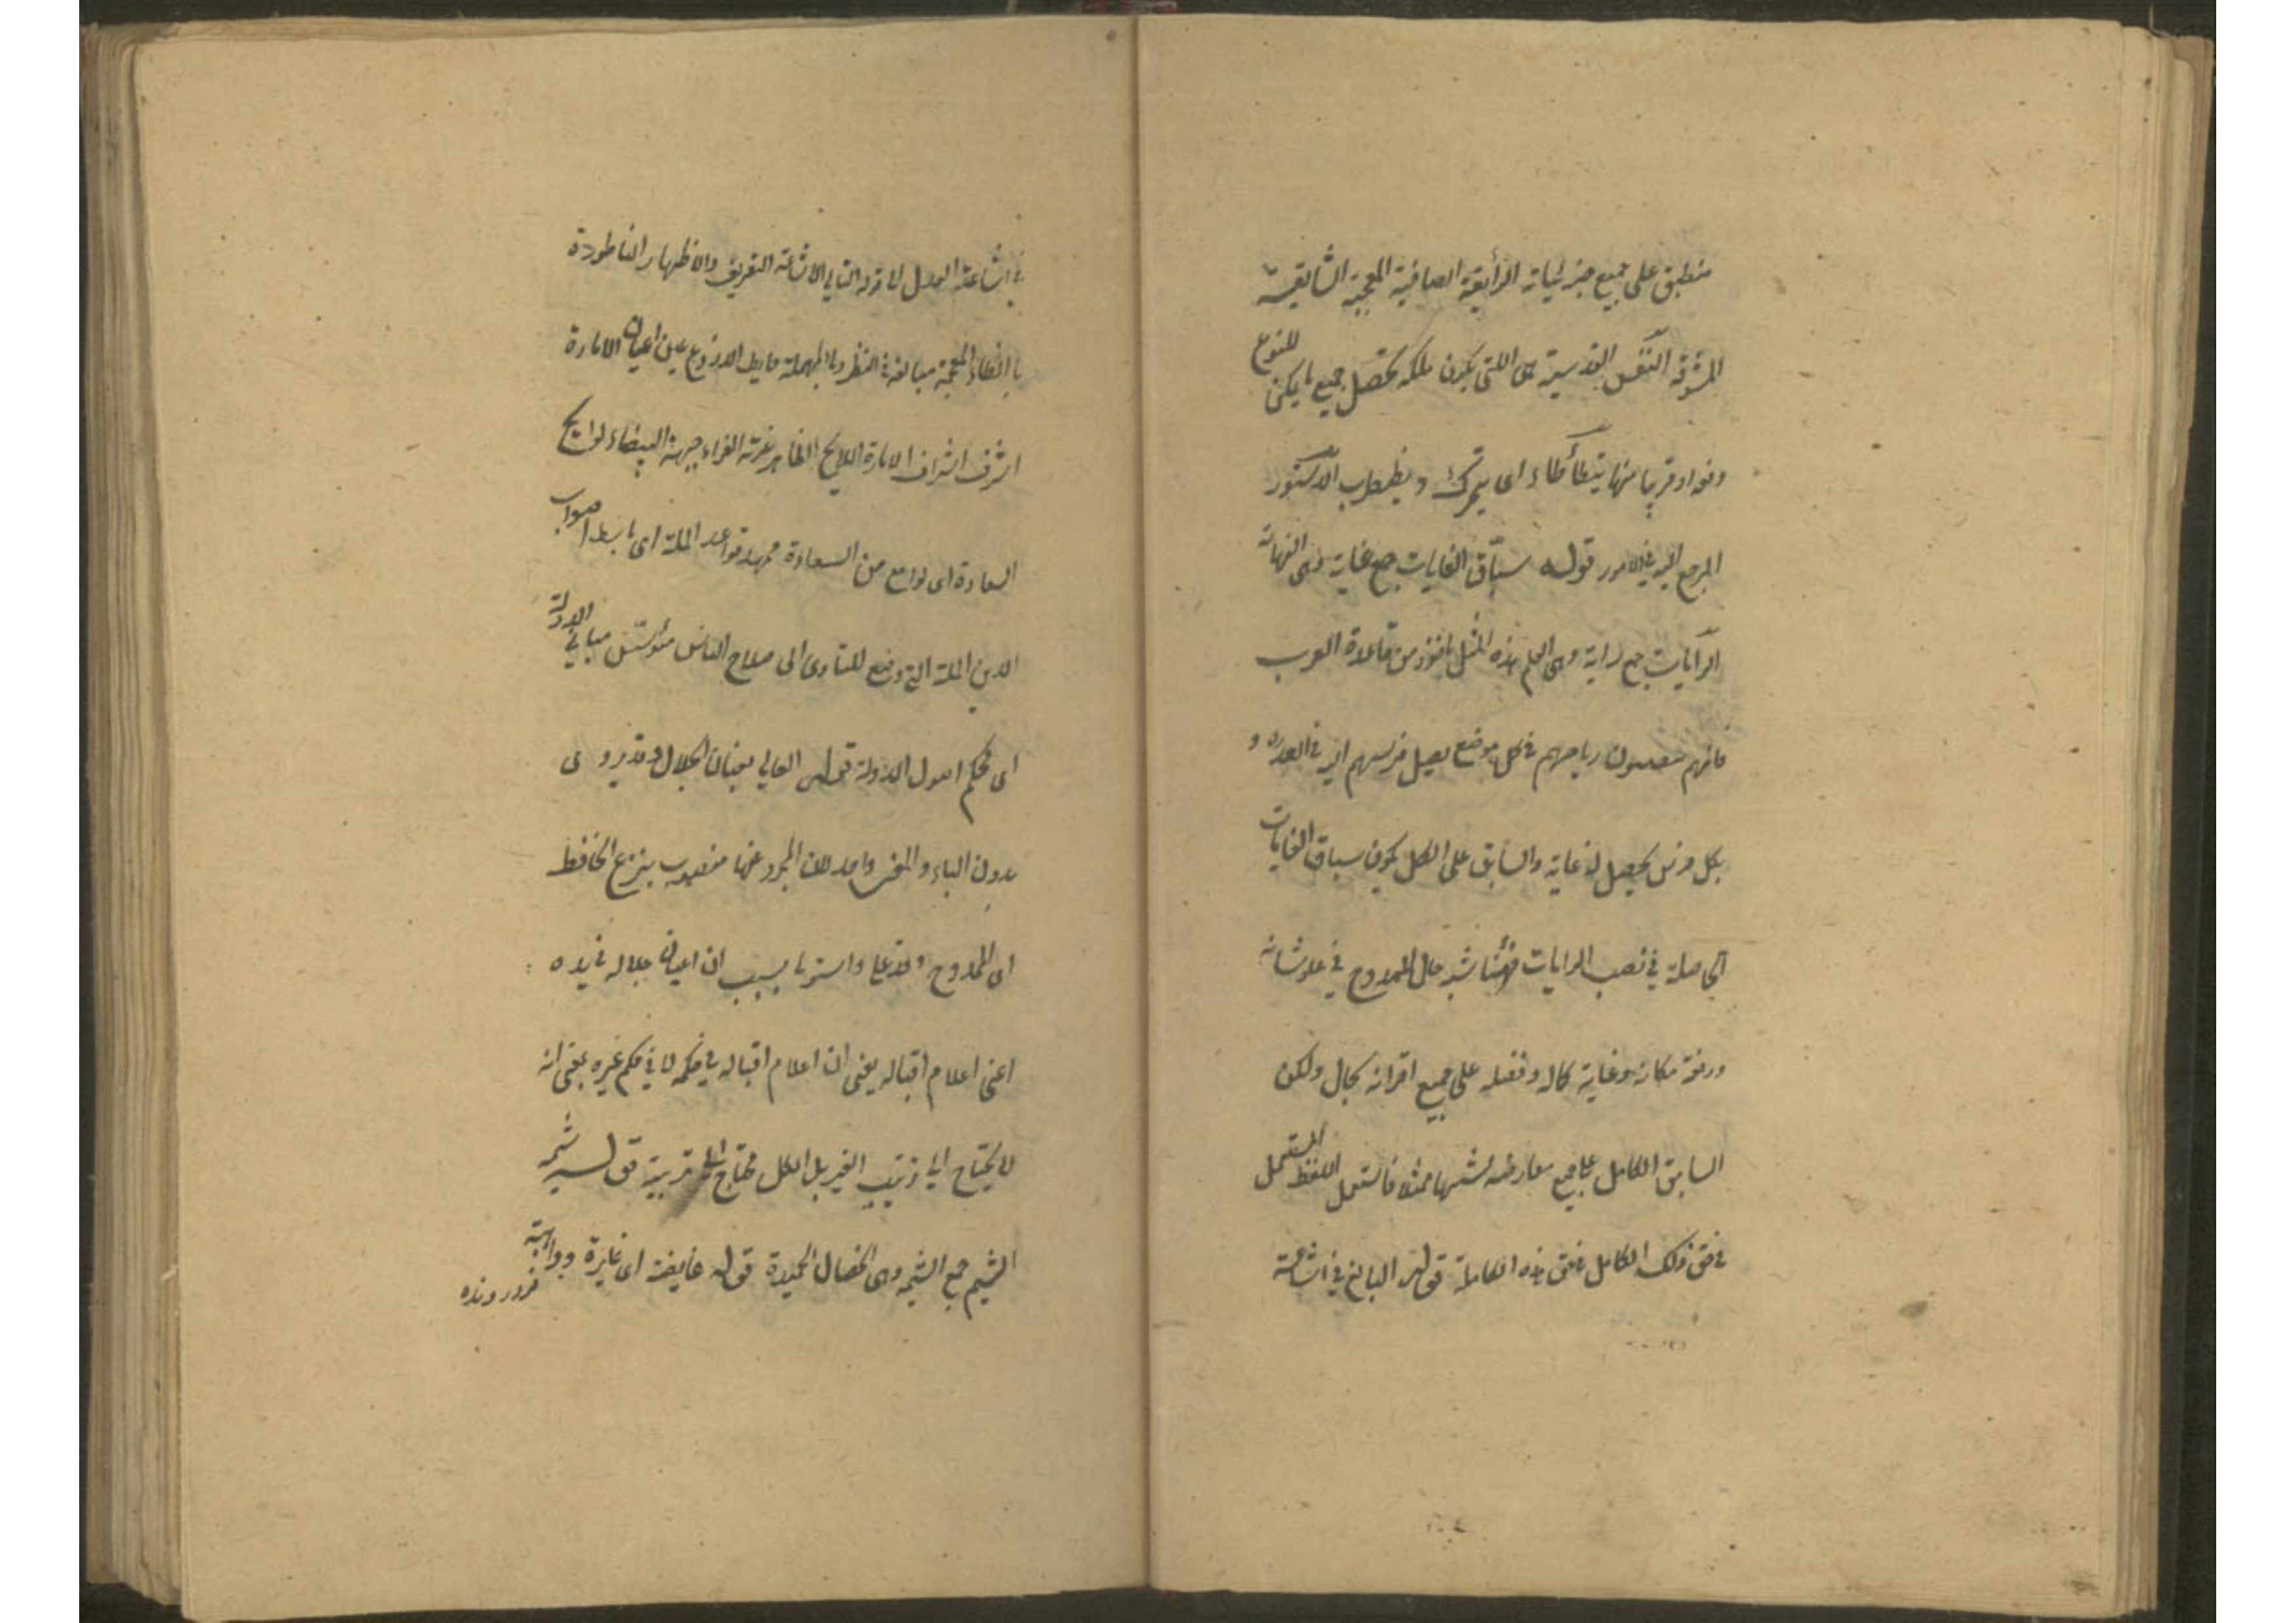 منطبق على جميع جزئياته الرأيقة الصافية المعجبة الشايقة
المشوقة النفس القدسية هى اللتى يكون ملكه تحصل جميع ما يمكن للنوع
دفعة او قريبا منها يتطأطاء اى يتحرك ويضطرب الدستور
المرجع اليه فى الامور قوله سبّاق الغايات جمع غاية وهى النهاية
الرايات جمع راية وهى العلم هذه المثل ماخوذ من قاعدة العرب
فانهم ينصبون رماحهم فى كل موضع يصل فرسهم اليه فى العدو و
بكل فرس يحصل له غاية والسابق على الكل يكون سباق الغايات
الحاصلة فى نصب الرايات فههنا شبه حال الممدوح فى علو شانه
ورفعة مكانه وغاية كماله وفضله على جميع اقرانه بحال
السابق الكامل على جميع معارضه فاستعمل اللفظ المستعمل
فى حق ذلك الكامل فى حق هذه الكاملة قوله البالغ فى اشاعة
فى اشاعة العدل الاشاعة التعريف والاظهار الناطورة
بالظاء المعجمة مبالغة فى النظر وبالمهملة حافظ الزروع عين اعيان الامارة
اشرف اشراف الامارة اللايح الظاهر غرته الغراء جبهته البيضاء لوايح
السعادة اى لوامع من السعادة ممهد قواعد الملة اى باسط ابواب
الدين الملة التى وضع للتأدى الى صلاح الناس مؤسّس مبانى الدولة
اى محكم اصول الدولة قوله العالى بعنان الجلال وقد روى
بدون الباء والمعنى واحد لان المجرد عنها منصوب بنزع الخافض
اى الممدوح قد علا واستربا بسبب ان اعيان جلاله فى يده
اعنى اعلام اقباله يعنى ان اعلام اقباله فى حكمه لا فى حكم غيره بمعنى انه
لا يحتاج الى ترتيب الغير بل الكل محتاج الى تربية قوله شيمه
الشيم جمع الشيمه وهى الخصال الحميدة قوله غايضة اى غايرة وواهبة
فرورونده